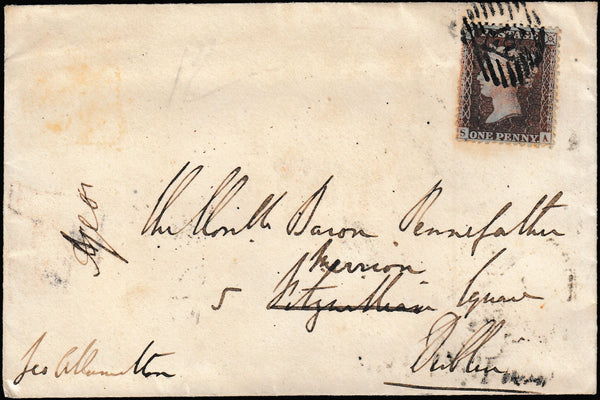 POSTAGE
S ONE PENNY A
The Honble Baron Pennefather
Merrion
5 Fitzwilliam Square
Dublin
Geo A Hamilton